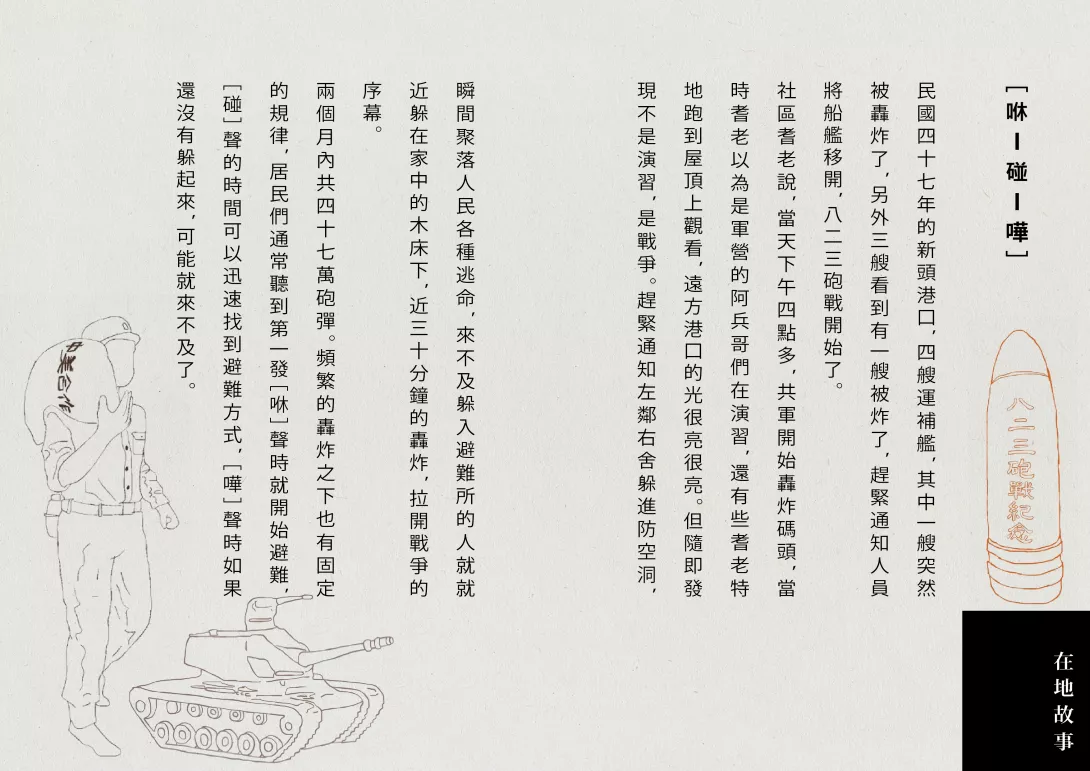 [咻－碰－嘩]
民國四十七年的新頭港口，四艘運補艦，其中一艘突然
被轟炸了，另外三艘看到有一艘被炸了，趕緊通知人員
將船艦移開，八二三砲戰開始了。
社區耆老說，當天下午四點多，共軍開始轟炸碼頭，當
時耆老以為是軍營的阿兵哥們在演習，還有些耆老特
地跑到屋頂上觀看，遠方港口的光很亮很亮。但隨即發
現不是演習，是戰爭。趕緊通知左鄰右舍躲進防空洞，
瞬間聚落人民各種逃命，來不及躲入避難所的人就就
近躲在家中的木床下，近三十分鐘的轟炸，拉開戰爭的
序幕。
兩個月內共四十七萬砲彈。頻繁的轟炸之下也有固定
的規律，居民們通常聽到第一發[咻]聲時就開始避難，
[碰]聲的時間可以迅速找到避難方式，[嘩]聲時如果
還沒有躲起來，可能就來不及了。
八二三砲戰紀念
中美合作
在地故事